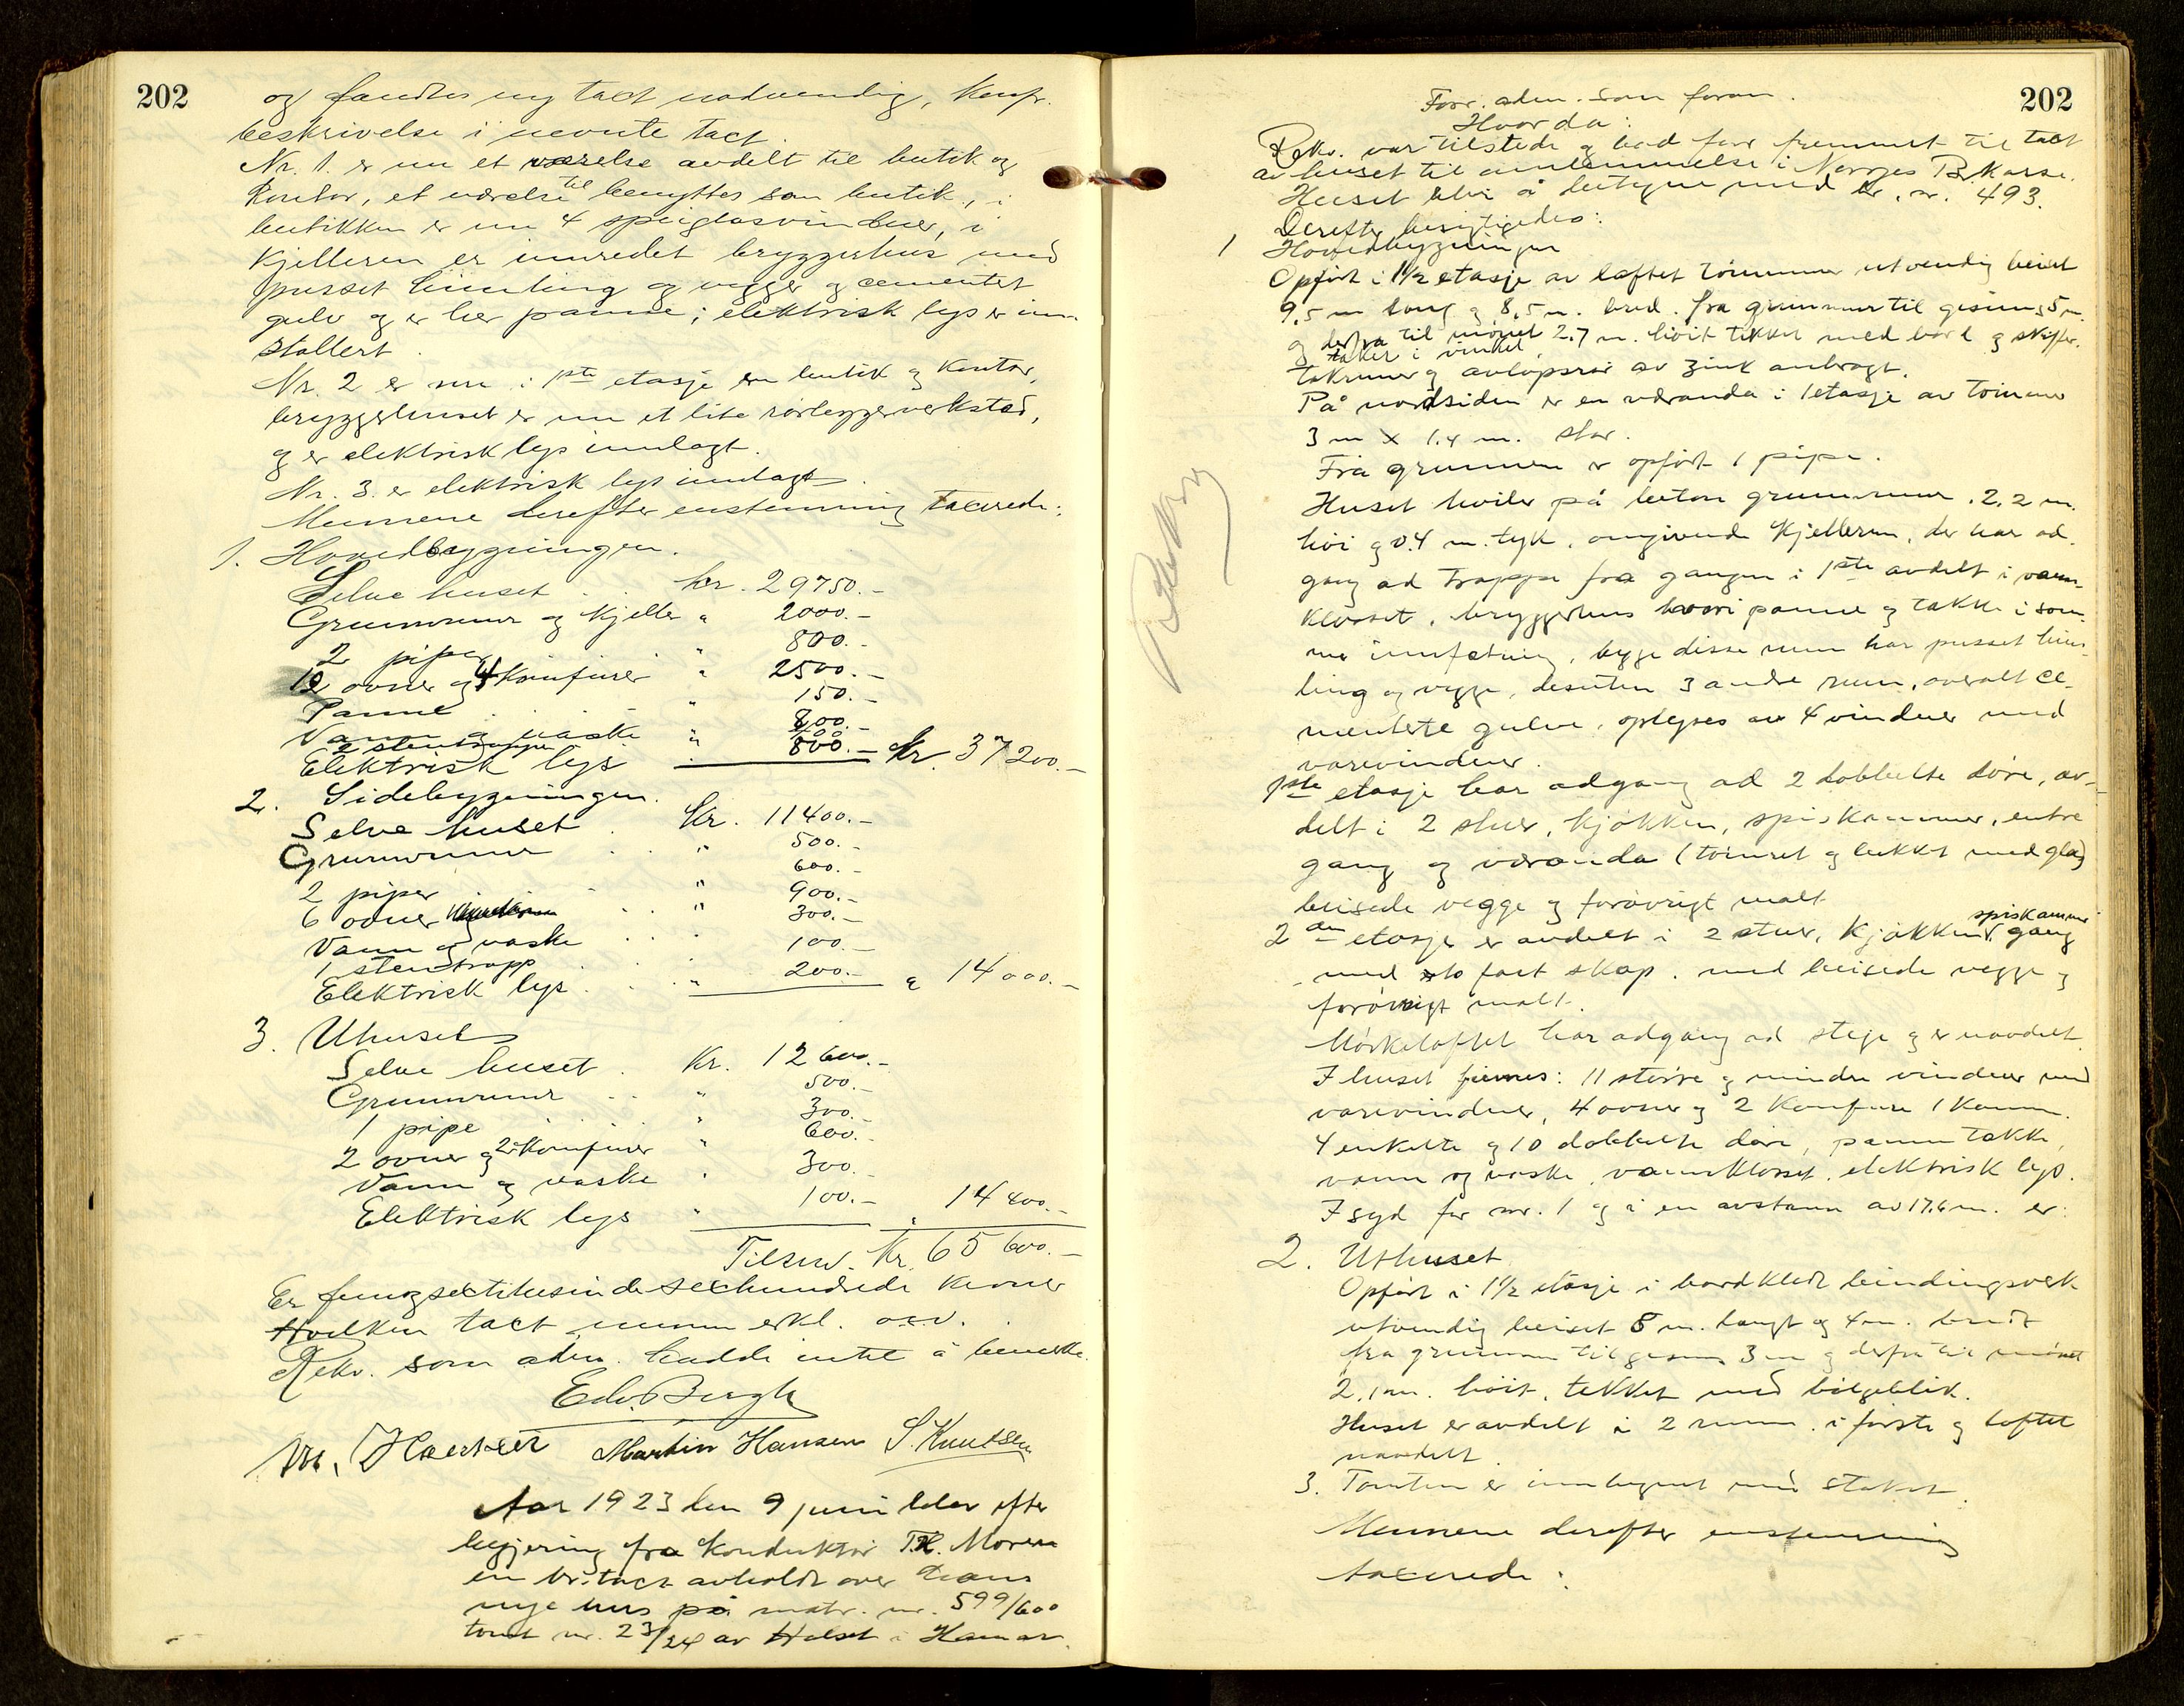 202
og fandtes ny taxt nødvendig, konfr.
beskrivelse i nevnte taxt.
Nr. 1. er nu et værelse avdelt til butik og
kontor, et værelse til benyttes som butik, i
butikken er nu 4 speilglasvinduer, i
kjelleren er innredet bryggerhus med
pusset himling og vegger og cementet
gulv og er her panne; elektrisk lys er inn-
stallert.
Nr. 2 er nu i 1ste etasje en butik og kontor,
bryggerhuset er nu et lite rørleggerverksted,
og er elektrisk lys innlagt.
Nr. 3. er elektrisk lys innlagt.
Mennene derefter enstemmig taxerede:
1. Hovedbygningen.
Selve huset . . kr. 29750.-
Grunnmur og kjeller " 2000.-
2 piper " 800.-
12 ovner og 4 komfurer " 2500.-
Panne . . " 150.-
Vann og vaske " 800.-
2 stentrapper " 400.-
Elektrisk lys " 800.- Kr. 37200.-
2. Sidebygningen.
Selve huset . Kr. 11400.-
Grunnmur . . " 500.-
2 piper " 600.-
6 ovner " 900.-
Vann og vaske . . " 300.-
1 stentrapp . . " 100.-
Elektrisk lys . . " 200.- " 14000.-
3. Uthuset
Selve huset . Kr. 12600.-
Grunnmur . . " 500.-
1 pipe " 300.-
2 ovner og 2 komfurer " 600.-
Vann og vaske " 300.-
Elektrisk lys " 100.- " 14400.-
Tilsm. Kr. 65600.-
Er femogsextitusinde sexhundrede kroner
Hvilken taxt menn erkl. osv.
Rekv. som aden. hadde intet å bemerke.
Edv. Bergh
M. Martin Hansen S. Knutsen
Aar 1923 den 9 juni blev efter
begjering fra konduktør Th. Moren
en br.taxt avholdt over hans
nye hus på matr. nr. 599/600
tomt nr. 23/24 av Holset i Hamar.
202
Forr. aden. som foran.
Hvorda:
Rekv. var tilstede og bad forr. fremmet til taxt
av huset til innlemmelse i Norges Br.kasse.
Huset blir å betegne med br. nr. 493.
Derefter besigtigedes:
1 Hovedbygningen
Opført i 1 1/2 etasje av laftet tømmer utvendig beiset
9,5 m lang og 8,5 m. bred. fra grunnmur til gesims 5 m.
og derfra til mønet 2.7 m. høit tekket med bord og skiffer.
taket i vinkel,
takrenner og avløpsrør av zink anbragt.
På nordsiden er en veranda i 1 etasje av tømmer
3 m x 1.4 m. stor.
Fra grunnen er opført 1 pipe.
Huset hviler på beton grunnmur, 2.2 m.
høi og 0.4 m. tyk, omgivende kjelleren, der har ad-
gang ad trappe fra gangen i 1ste avdelt i vann-
klosset, bryggerhus hvori panne og takke i sam-
me innfatning, begge disse rum har pusset him-
ling og vegge, desuten 3 andre rum, overalt ce-
menterte gulve, oplyses av 4 vinduer med
varevinduer.
1ste etasje har adgang ad 2 dobbelte døre, av-
delt i 2 stuer, kjøkken, spiskammer, entre
gang og veranda (tømret og lukket med glas)
beisede vegge og forøvrigt malt.
2den etasje er avdelt i 2 stuer, kjøkken, spiskammer gang
med to fast skap. med beisede vegge og
forøvrigt malt.
Mørkeloftet har adgang ad stege og er uavdelt.
I huset finnes: 11 større og mindre vinduer med
varevinduer, 4 ovner og 2 komfure 1 kamin.
4 enkelte og 10 dobbelte døre, panne takke,
vann og vaske, vannklosset, elektrisk lys.
I syd for nr. 1 og i en avstann av 17.6 m. er:
2. Uthuset
Opført i 1 1/2 etasje i bordklædt bindingsverk
utvendig beiset 8 m. langt og 4 m. bredt
fra grunnen til gesims 3 m og derfra til mønet
2.1 m. høit, tekket med bølgeblik.
Huset er avdelt i 2 rumm i første og loftet
uavdelt.
3. Tomten er innhegnet med staket.
Mennene derefter enstemmig
taxerede: